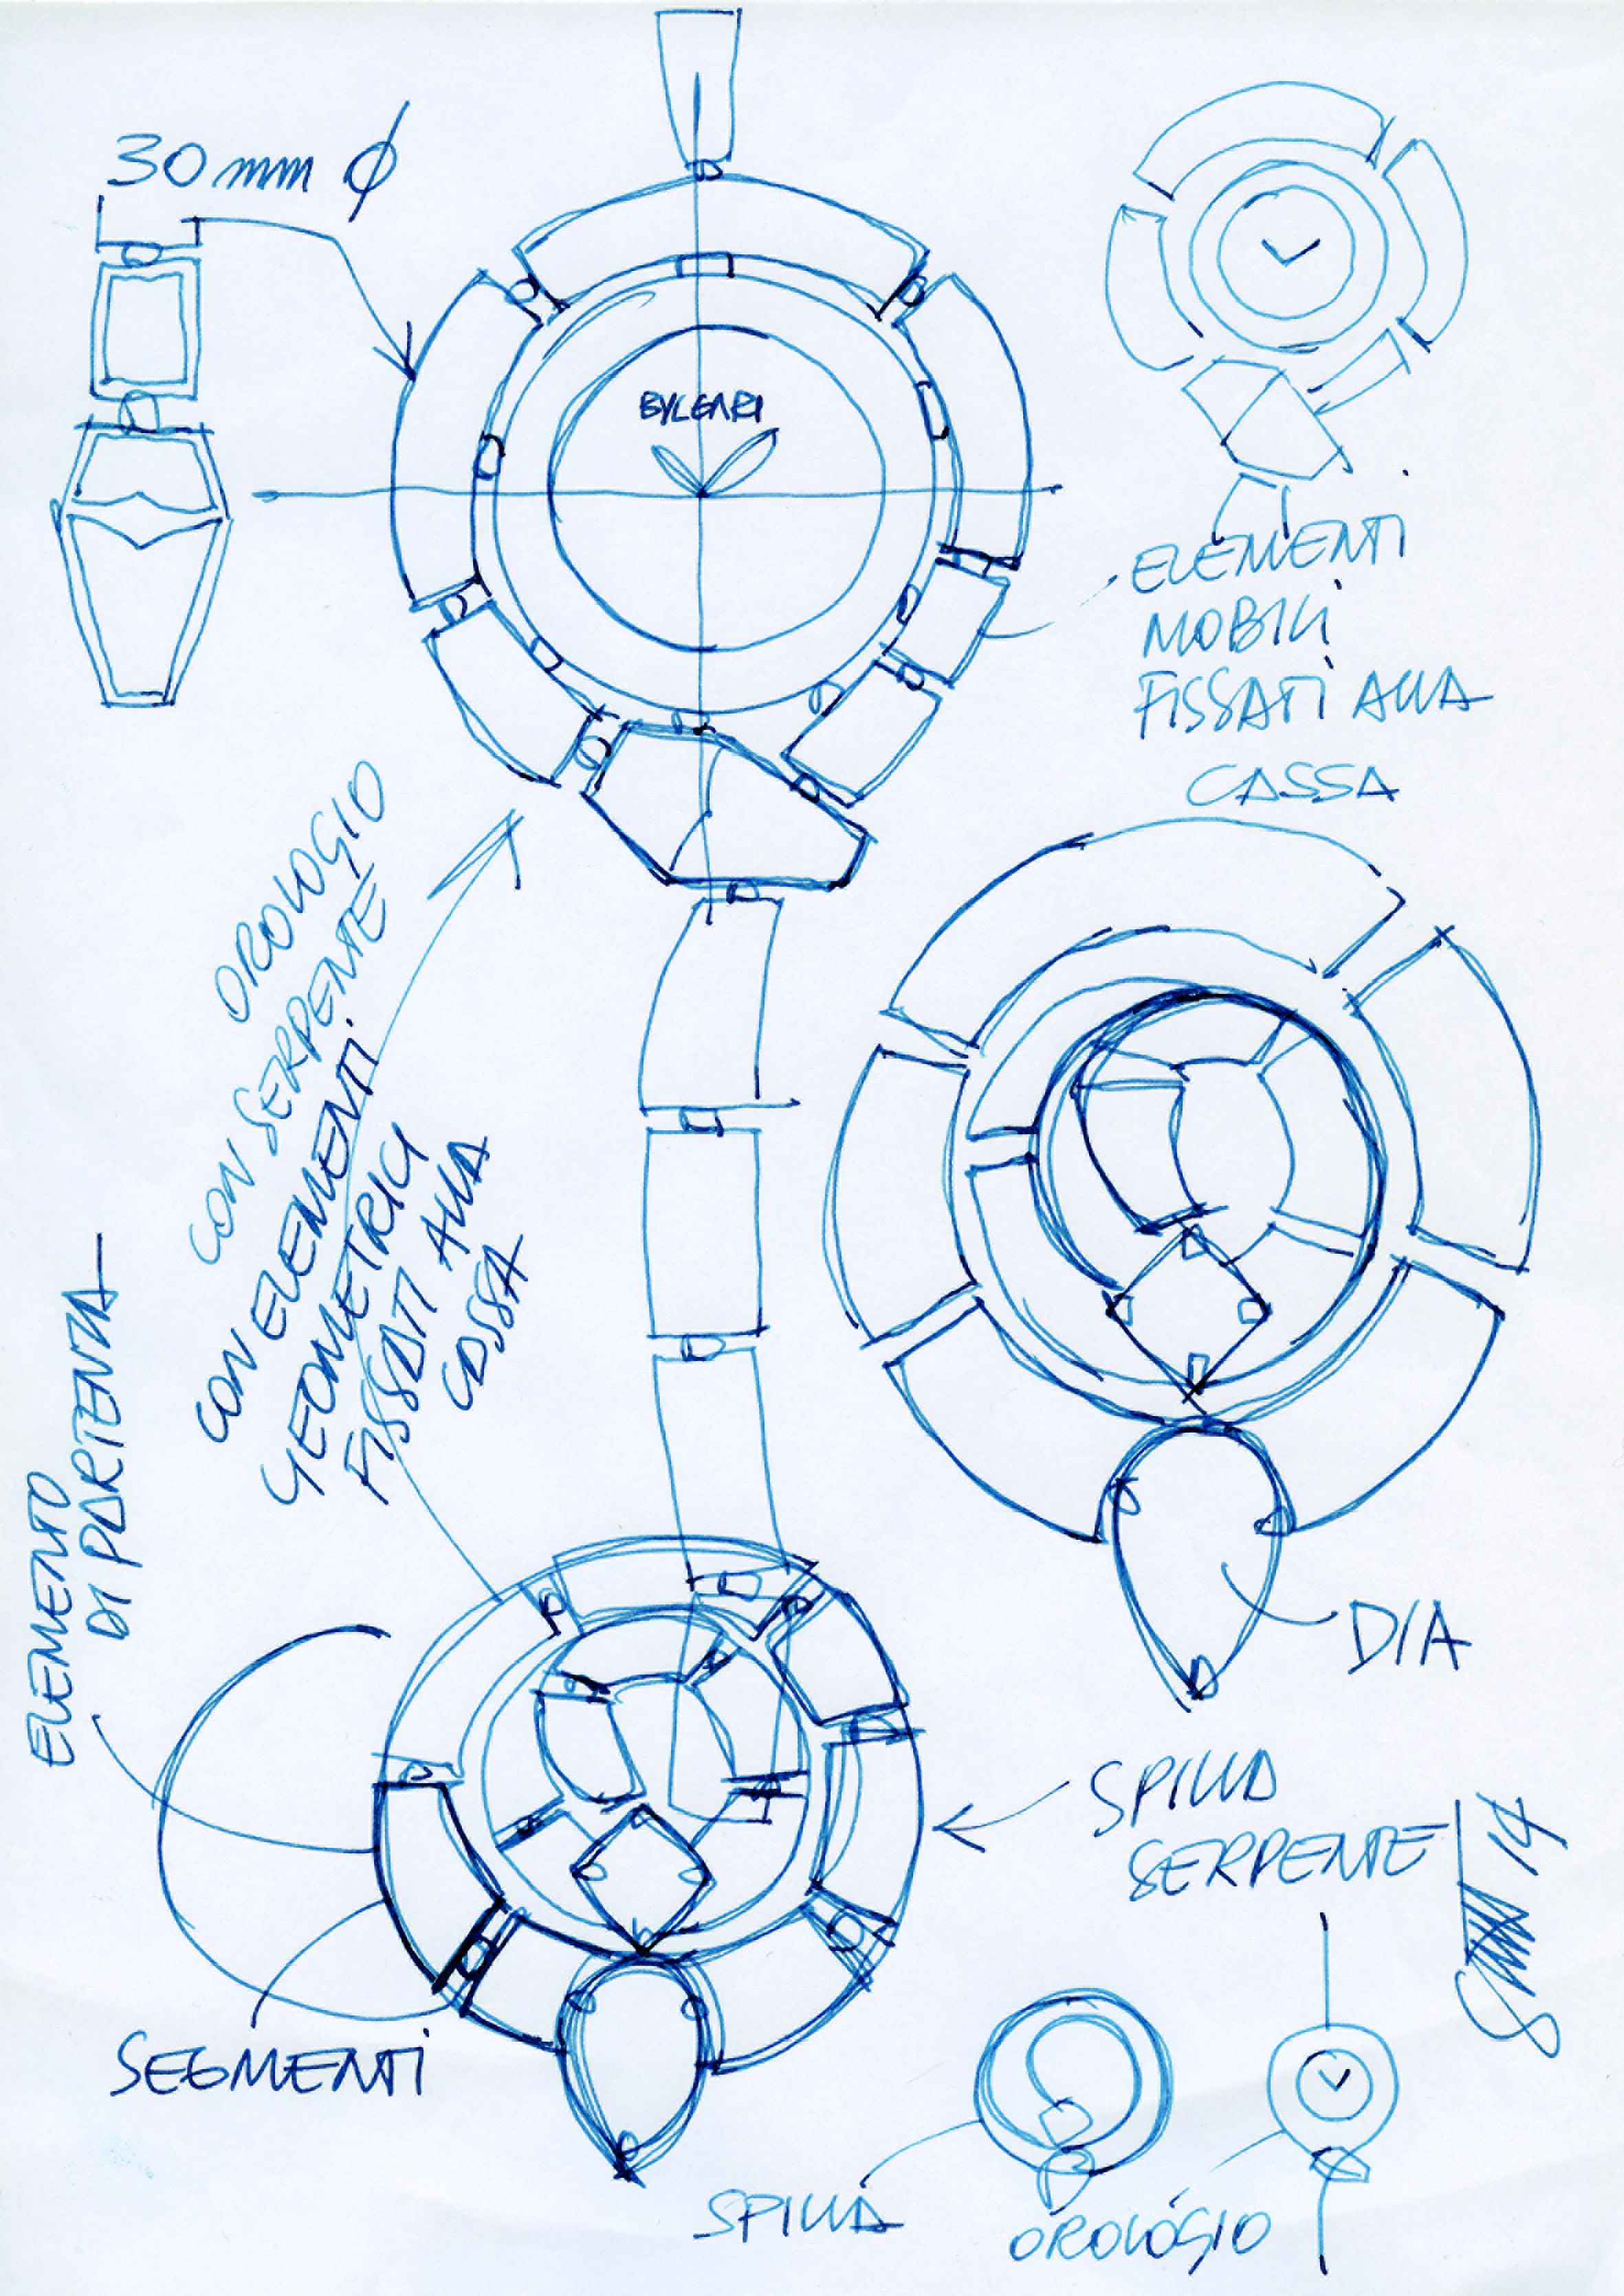 30 mm ϕ
BVLGARI
ELEMENTI
MOBILI
FISSATI ALLA
CASSA
OROLOGIO
CON SERPENTE
CON ELEMENTI
GEOMETRICI
FISSATI ALLA
CASSA
ELEMENTO
DI PARTENZA
DIA
SPILLA
SERPENTE
SEGMENTI
14
SPILLA
OROLOGIO